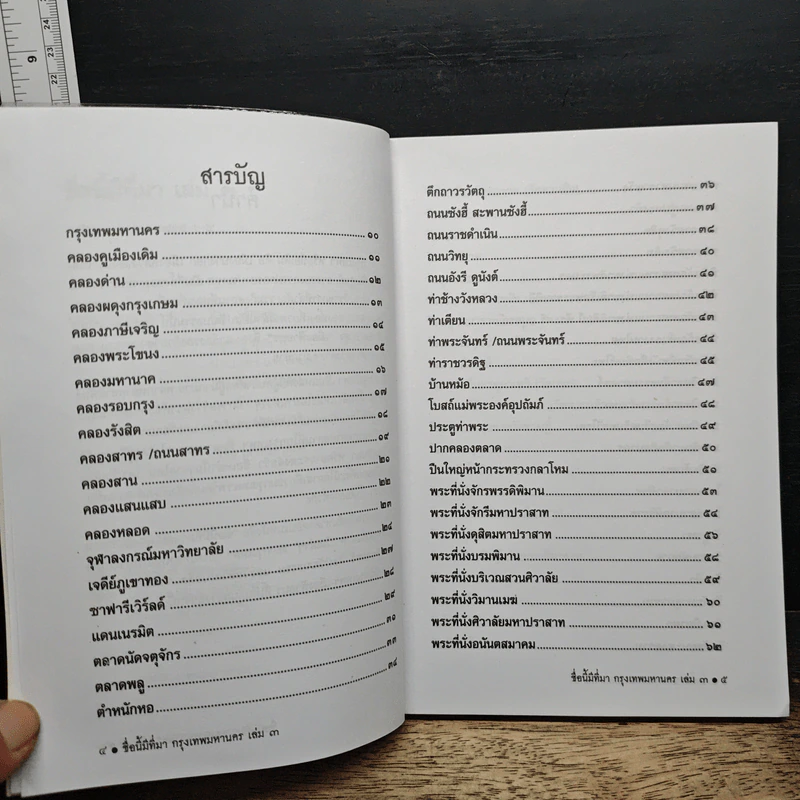 สารบัญ
กรุงเทพมหานคร ๑๐
คลองคูเมืองเดิม ๑๑
คลองด่าน ๑๒
คลองผดุงกรุงเกษม ๑๓
คลองภาษีเจริญ ๑๔
คลองพระโขนง ๑๕
คลองมหานาค ๑๖
คลองรอบกรุง ๑๗
คลองรังสิต ๑๘
คลองสาทร /ถนนสาทร ๑๙
คลองสาน ๒๑
คลองแสนแสบ ๒๒
คลองหลอด ๒๓
จุฬาลงกรณ์มหาวิทยาลัย ๒๔
เจดีย์ภูเขาทอง ๒๗
ซาฟารีเวิร์ลด์ ๒๘
แดนเนรมิต ๒๙
ตลาดนัดจตุจักร ๓๑
ตลาดพลู ๓๓
ตำหนักหอ ๓๔
๔ ● ชื่อนี้มีที่มา กรุงเทพมหานคร เล่ม ๓
ตึกถาวรวัตถุ ๓๖
ถนนซังฮี้ สะพานซังฮี้ ๓๗
ถนนราชดำเนิน ๓๘
ถนนวิทยุ ๔๐
ถนนอังรี ดูนังต์ ๔๑
ท่าช้างวังหลวง ๔๒
ท่าเตียน ๔๓
ท่าพระจันทร์ /ถนนพระจันทร์ ๔๔
ท่าราชวรดิฐ ๔๕
บ้านหม้อ ๔๗
โบสถ์แม่พระองค์อุปถัมภ์ ๔๘
ประตูท่าพระ ๔๙
ปากคลองตลาด ๕๐
ปืนใหญ่หน้ากระทรวงกลาโหม ๕๑
พระที่นั่งจักรพรรดิพิมาน ๕๓
พระที่นั่งจักรีมหาปราสาท ๕๔
พระที่นั่งดุสิตมหาปราสาท ๕๖
พระที่นั่งบรมพิมาน ๕๘
พระที่นั่งบริเวณสวนศิวาลัย ๕๙
พระที่นั่งวิมานเมฆ ๖๐
พระที่นั่งศิวาลัยมหาปราสาท ๖๑
พระที่นั่งอนันตสมาคม ๖๒
ชื่อนี้มีที่มา กรุงเทพมหานคร เล่ม ๓ ● ๕
24
23
22
9